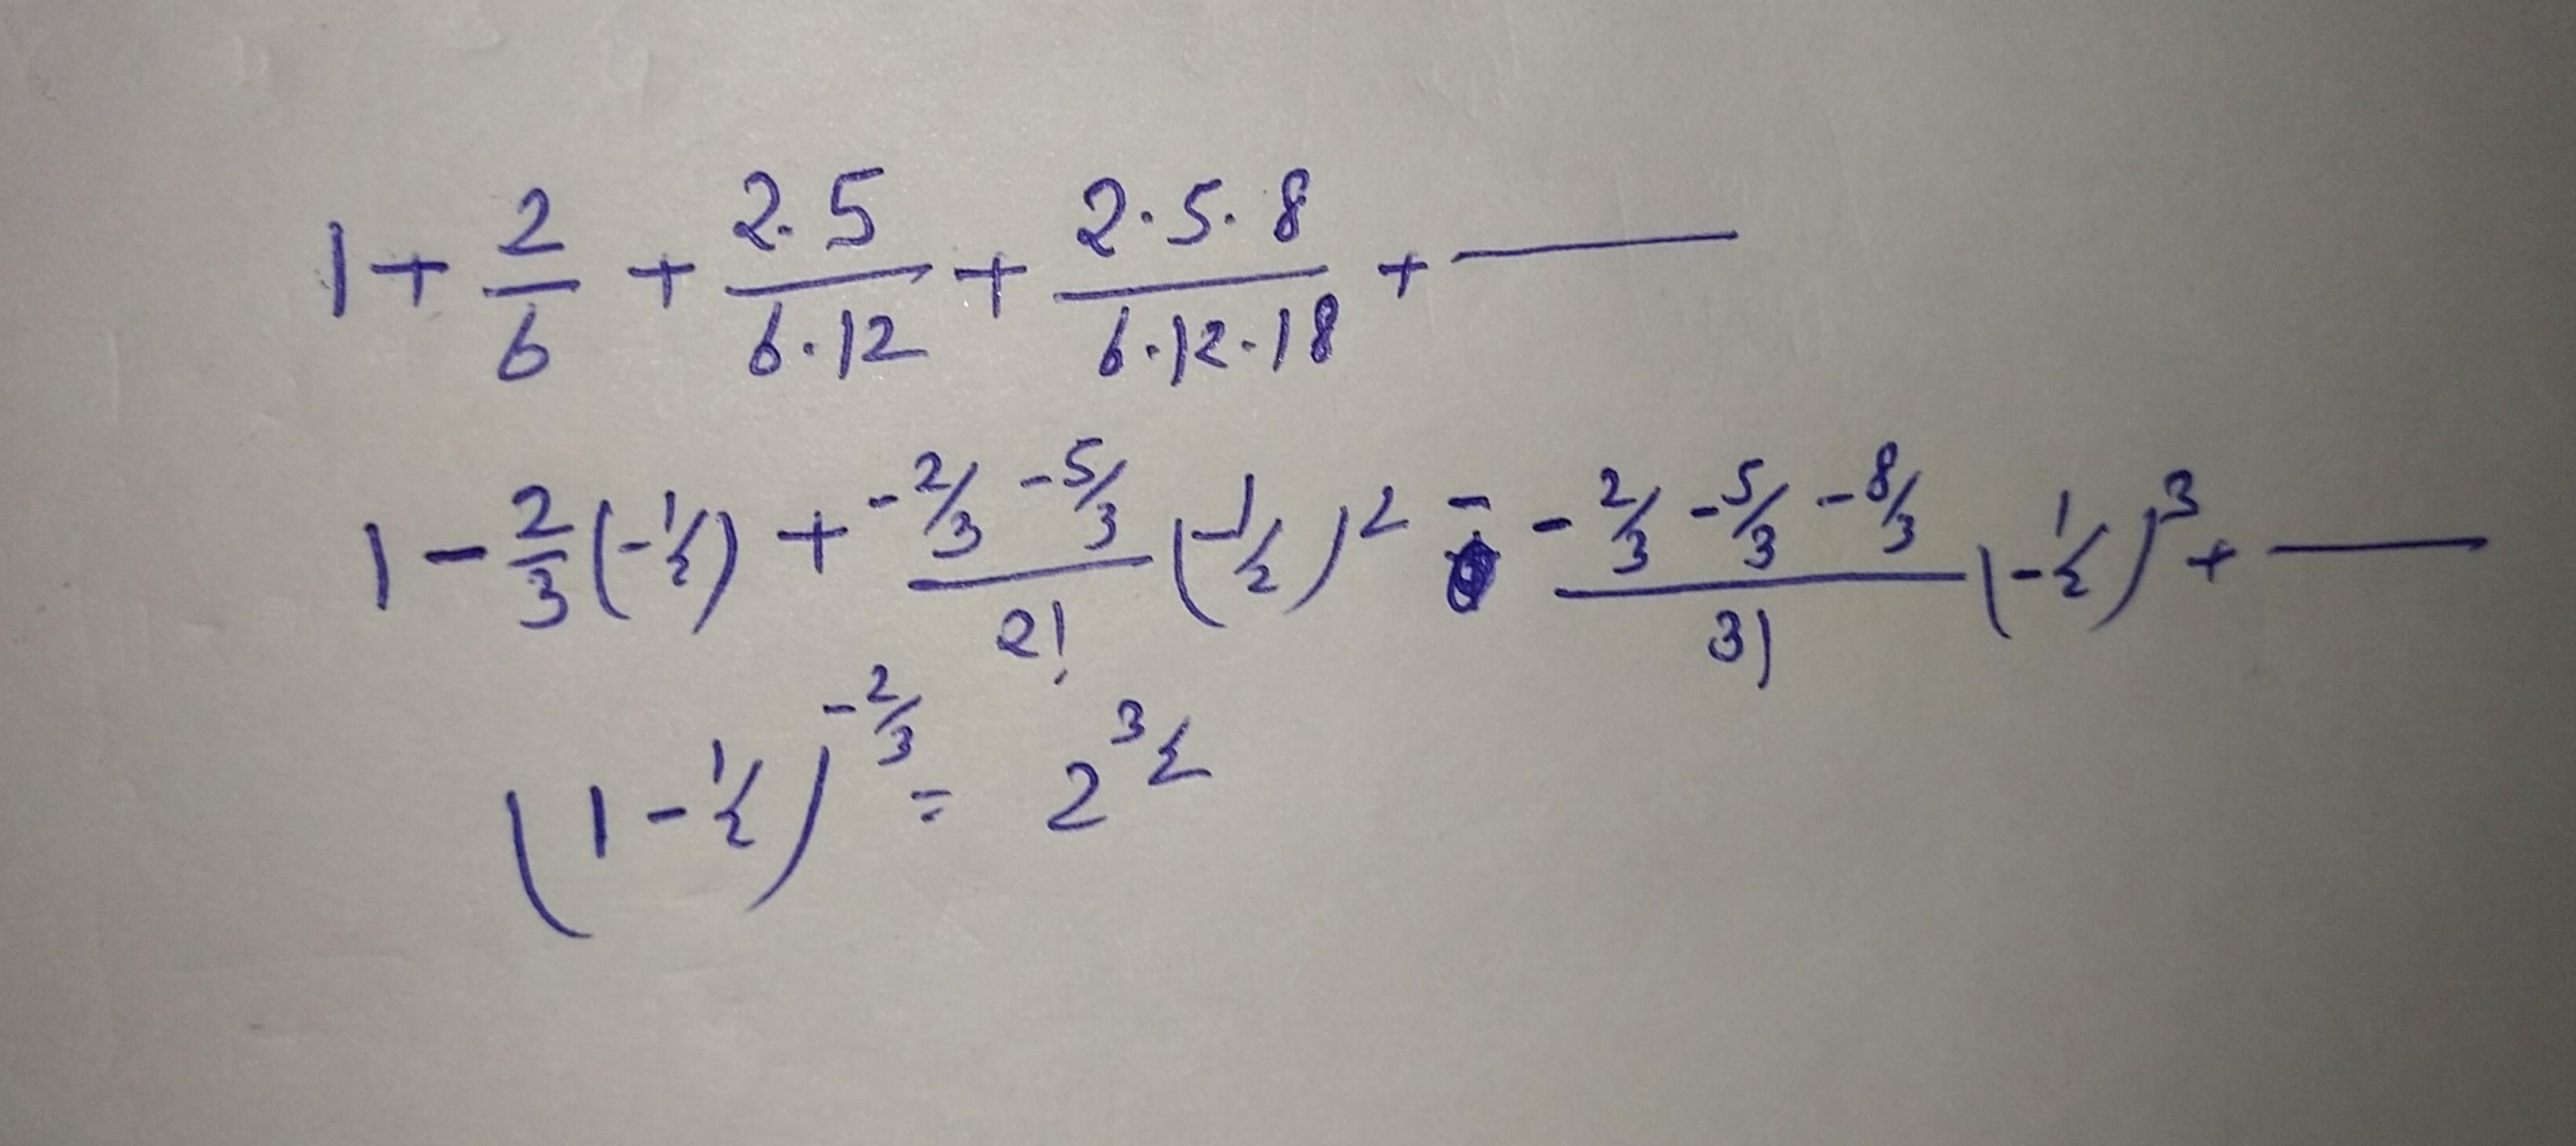 1 + 2/6 + 2.5/6.12 + 2.5.8/6.12.18 + ———
1 - 2/3 (-1/2) + -2/3 -5/3/2! (-1/2)² - -2/3 -5/3 -8/3/3! (-1/2)³ + ———
(1 - 1/2)^-2/3 = 2^3/2